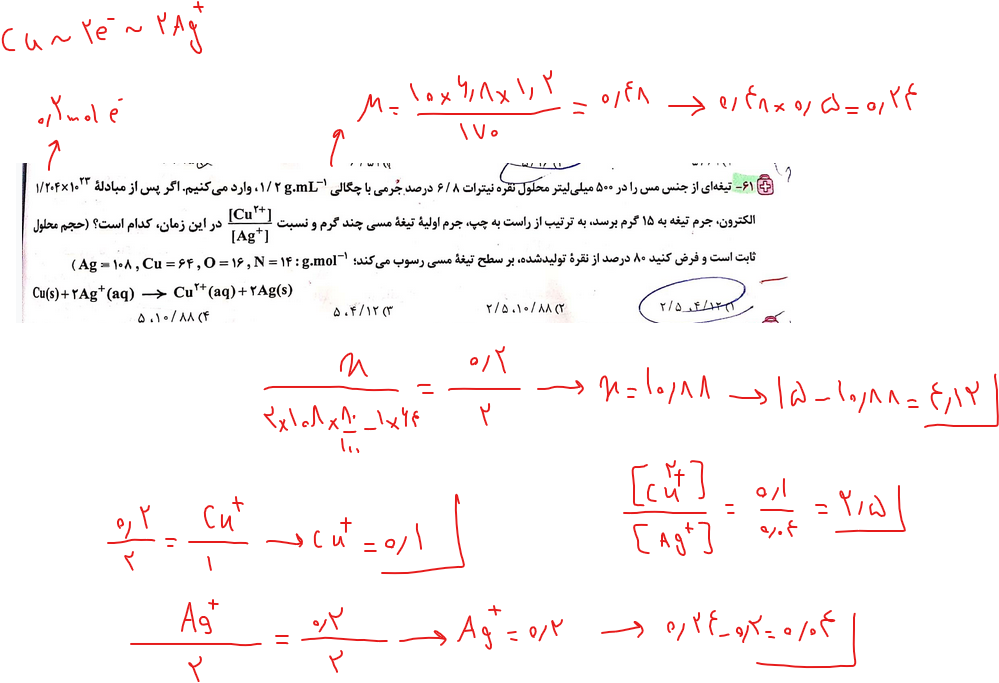 Cu ~ ۲e⁻ ~ ۲Ag⁺
۰٫۲ mol e⁻
M = (۱۰ × ۶٫۸ × ۱٫۲) / ۱۷۰ = ۰٫۴۸ → ۰٫۴۸ × ۰٫۵ = ۰٫۲۴
۶۱- تیغه‌ای از جنس مس را در ۵۰۰ میلی‌لیتر محلول نقره نیترات ۶/۸ درصد جرمی با چگالی ۱/۲ g.mL⁻¹، وارد می‌کنیم. اگر پس از مبادلهٔ ۱/۲۰۴×۱۰²³
الکترون، جرم تیغه به ۱۵ گرم برسد، به ترتیب از راست به چپ، جرم اولیهٔ تیغهٔ مسی چند گرم و نسبت [Cu²⁺]/[Ag⁺] در این زمان، کدام است؟ (حجم محلول
ثابت است و فرض کنید ۸۰ درصد از نقرهٔ تولیدشده، بر سطح تیغهٔ مسی رسوب می‌کند؛ (Ag = ۱۰۸ , Cu = ۶۴ , O = ۱۶ , N = ۱۴ : g.mol⁻¹)
Cu(s) + ۲Ag⁺(aq) → Cu²⁺(aq) + ۲Ag(s)
۱) ۴/۱۲، ۲/۵
۲) ۱۰/۸۸، ۲/۵
۳) ۴/۱۲، ۵
۴) ۱۰/۸۸، ۵
x / (۲×۱۰۸×۸۰/۱۰۰ − ۱×۶۴) = ۰٫۲ / ۲ → x = ۱۰٫۸۸ → ۱۵ − ۱۰٫۸۸ = ۴٫۱۲
[Cu²⁺] / [Ag⁺] = ۰٫۱ / ۰٫۰۴ = ۲٫۵
۰٫۲ / ۲ = Cu⁺ / ۱ → Cu⁺ = ۰٫۱
Ag⁺ / ۲ = ۰٫۲ / ۲ → Ag⁺ = ۰٫۲ → ۰٫۲۴ − ۰٫۲ = ۰٫۰۴